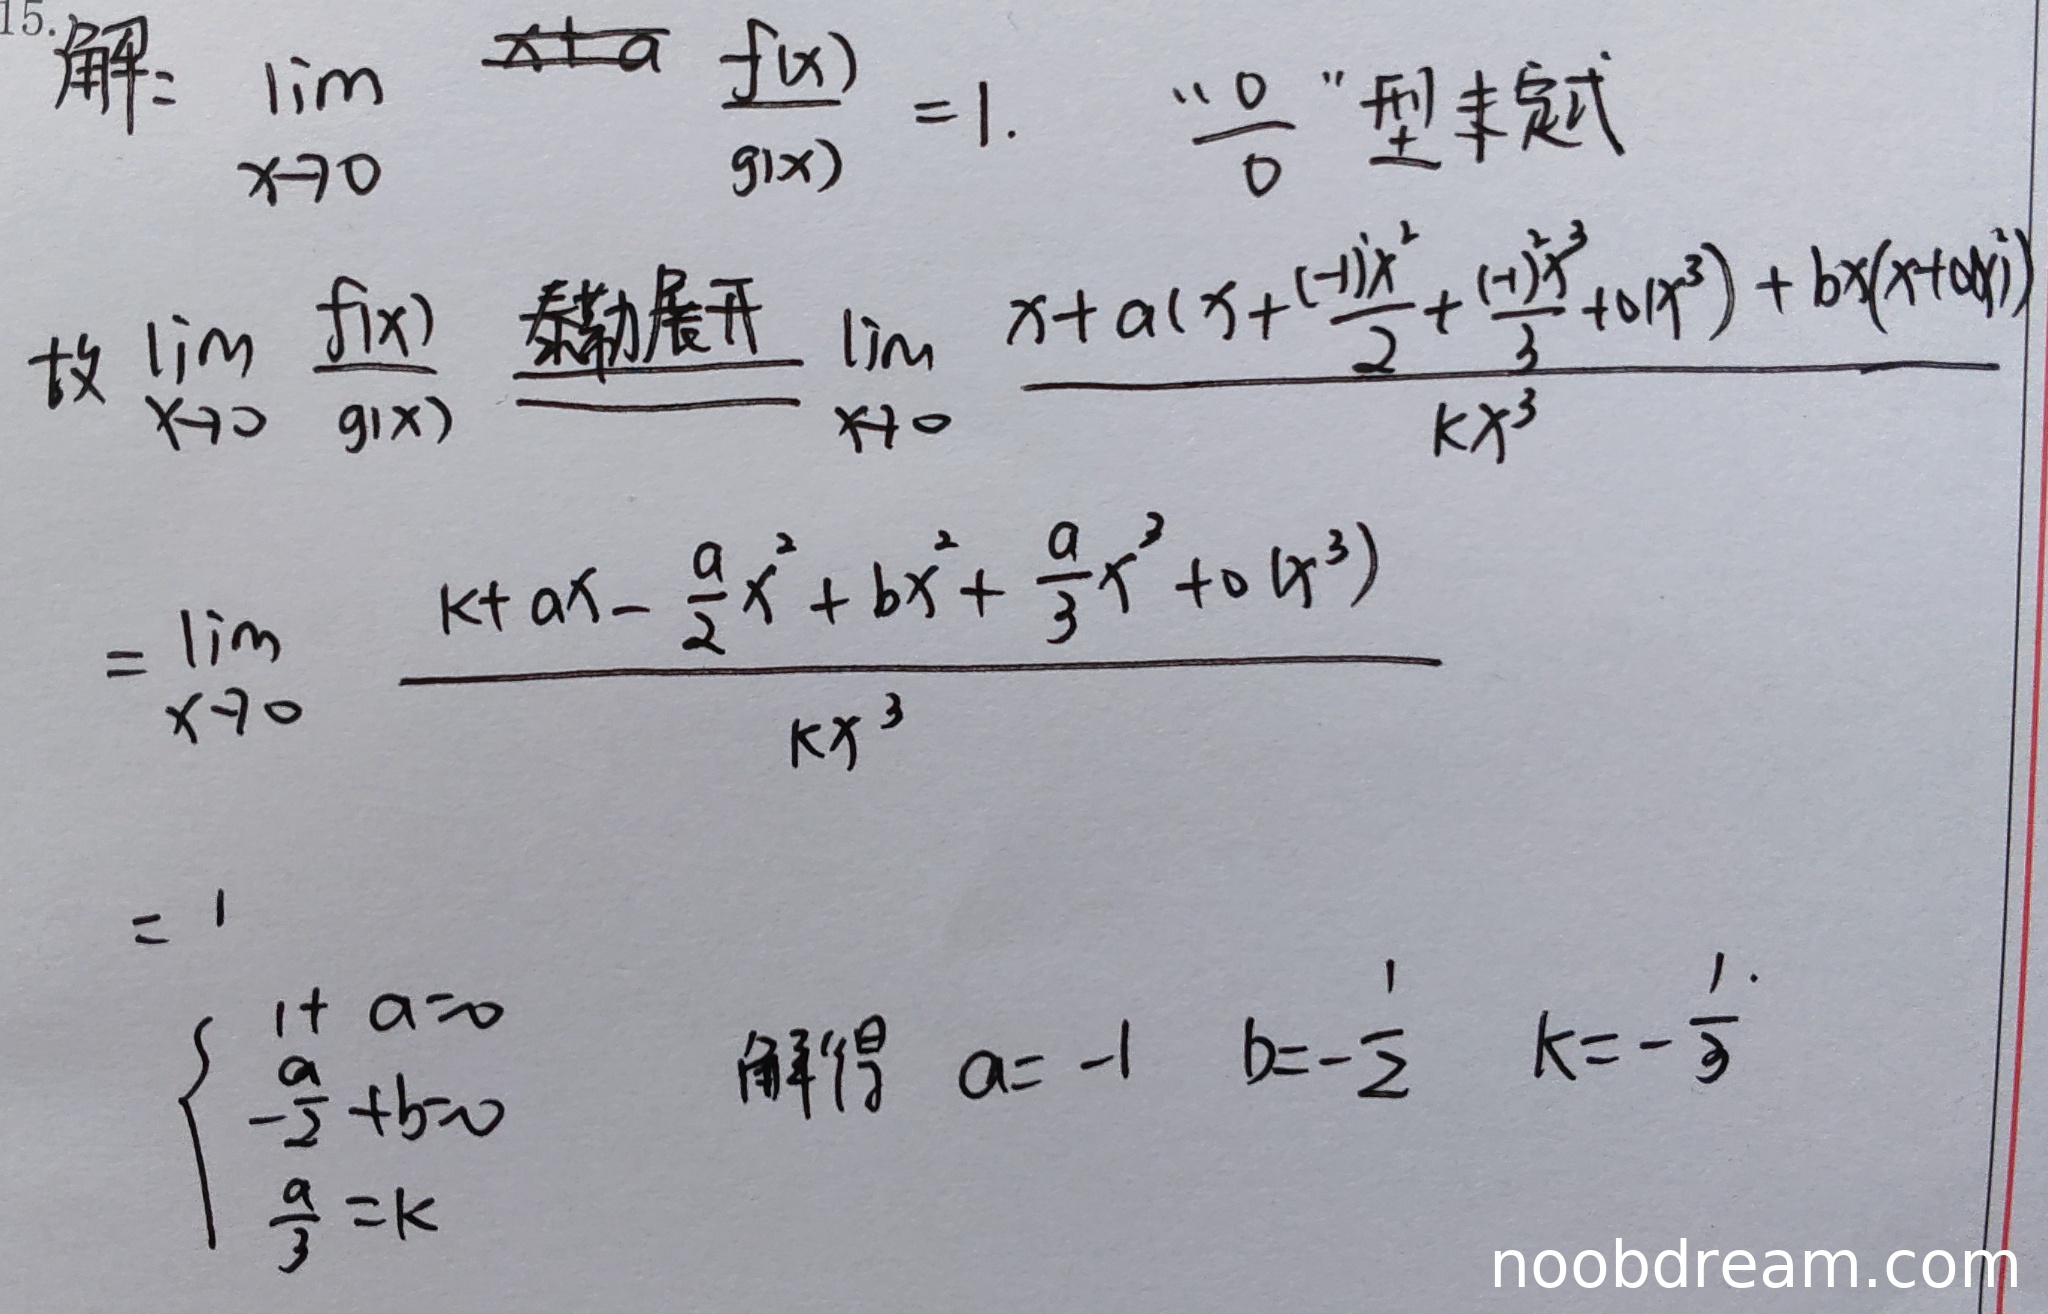 15.
解: lim x→0 f(x)/g(x) = 1. “0/0”型未定式
故 lim x→0 f(x)/g(x) 泰勒展开 lim x→0 (x+a(x+(-1)¹x²/2+(-1)²x³/3+o(x³))+bx(x+o(x²)))/kx³
= lim x→0 (x+ax-a/2 x²+bx²+a/3 x³+o(x³))/kx³
= 1
{ 1+a=0
-a/2+b=0 解得 a=-1 b=-1/2 k=-1/3.
a/3=k
noobdream.com